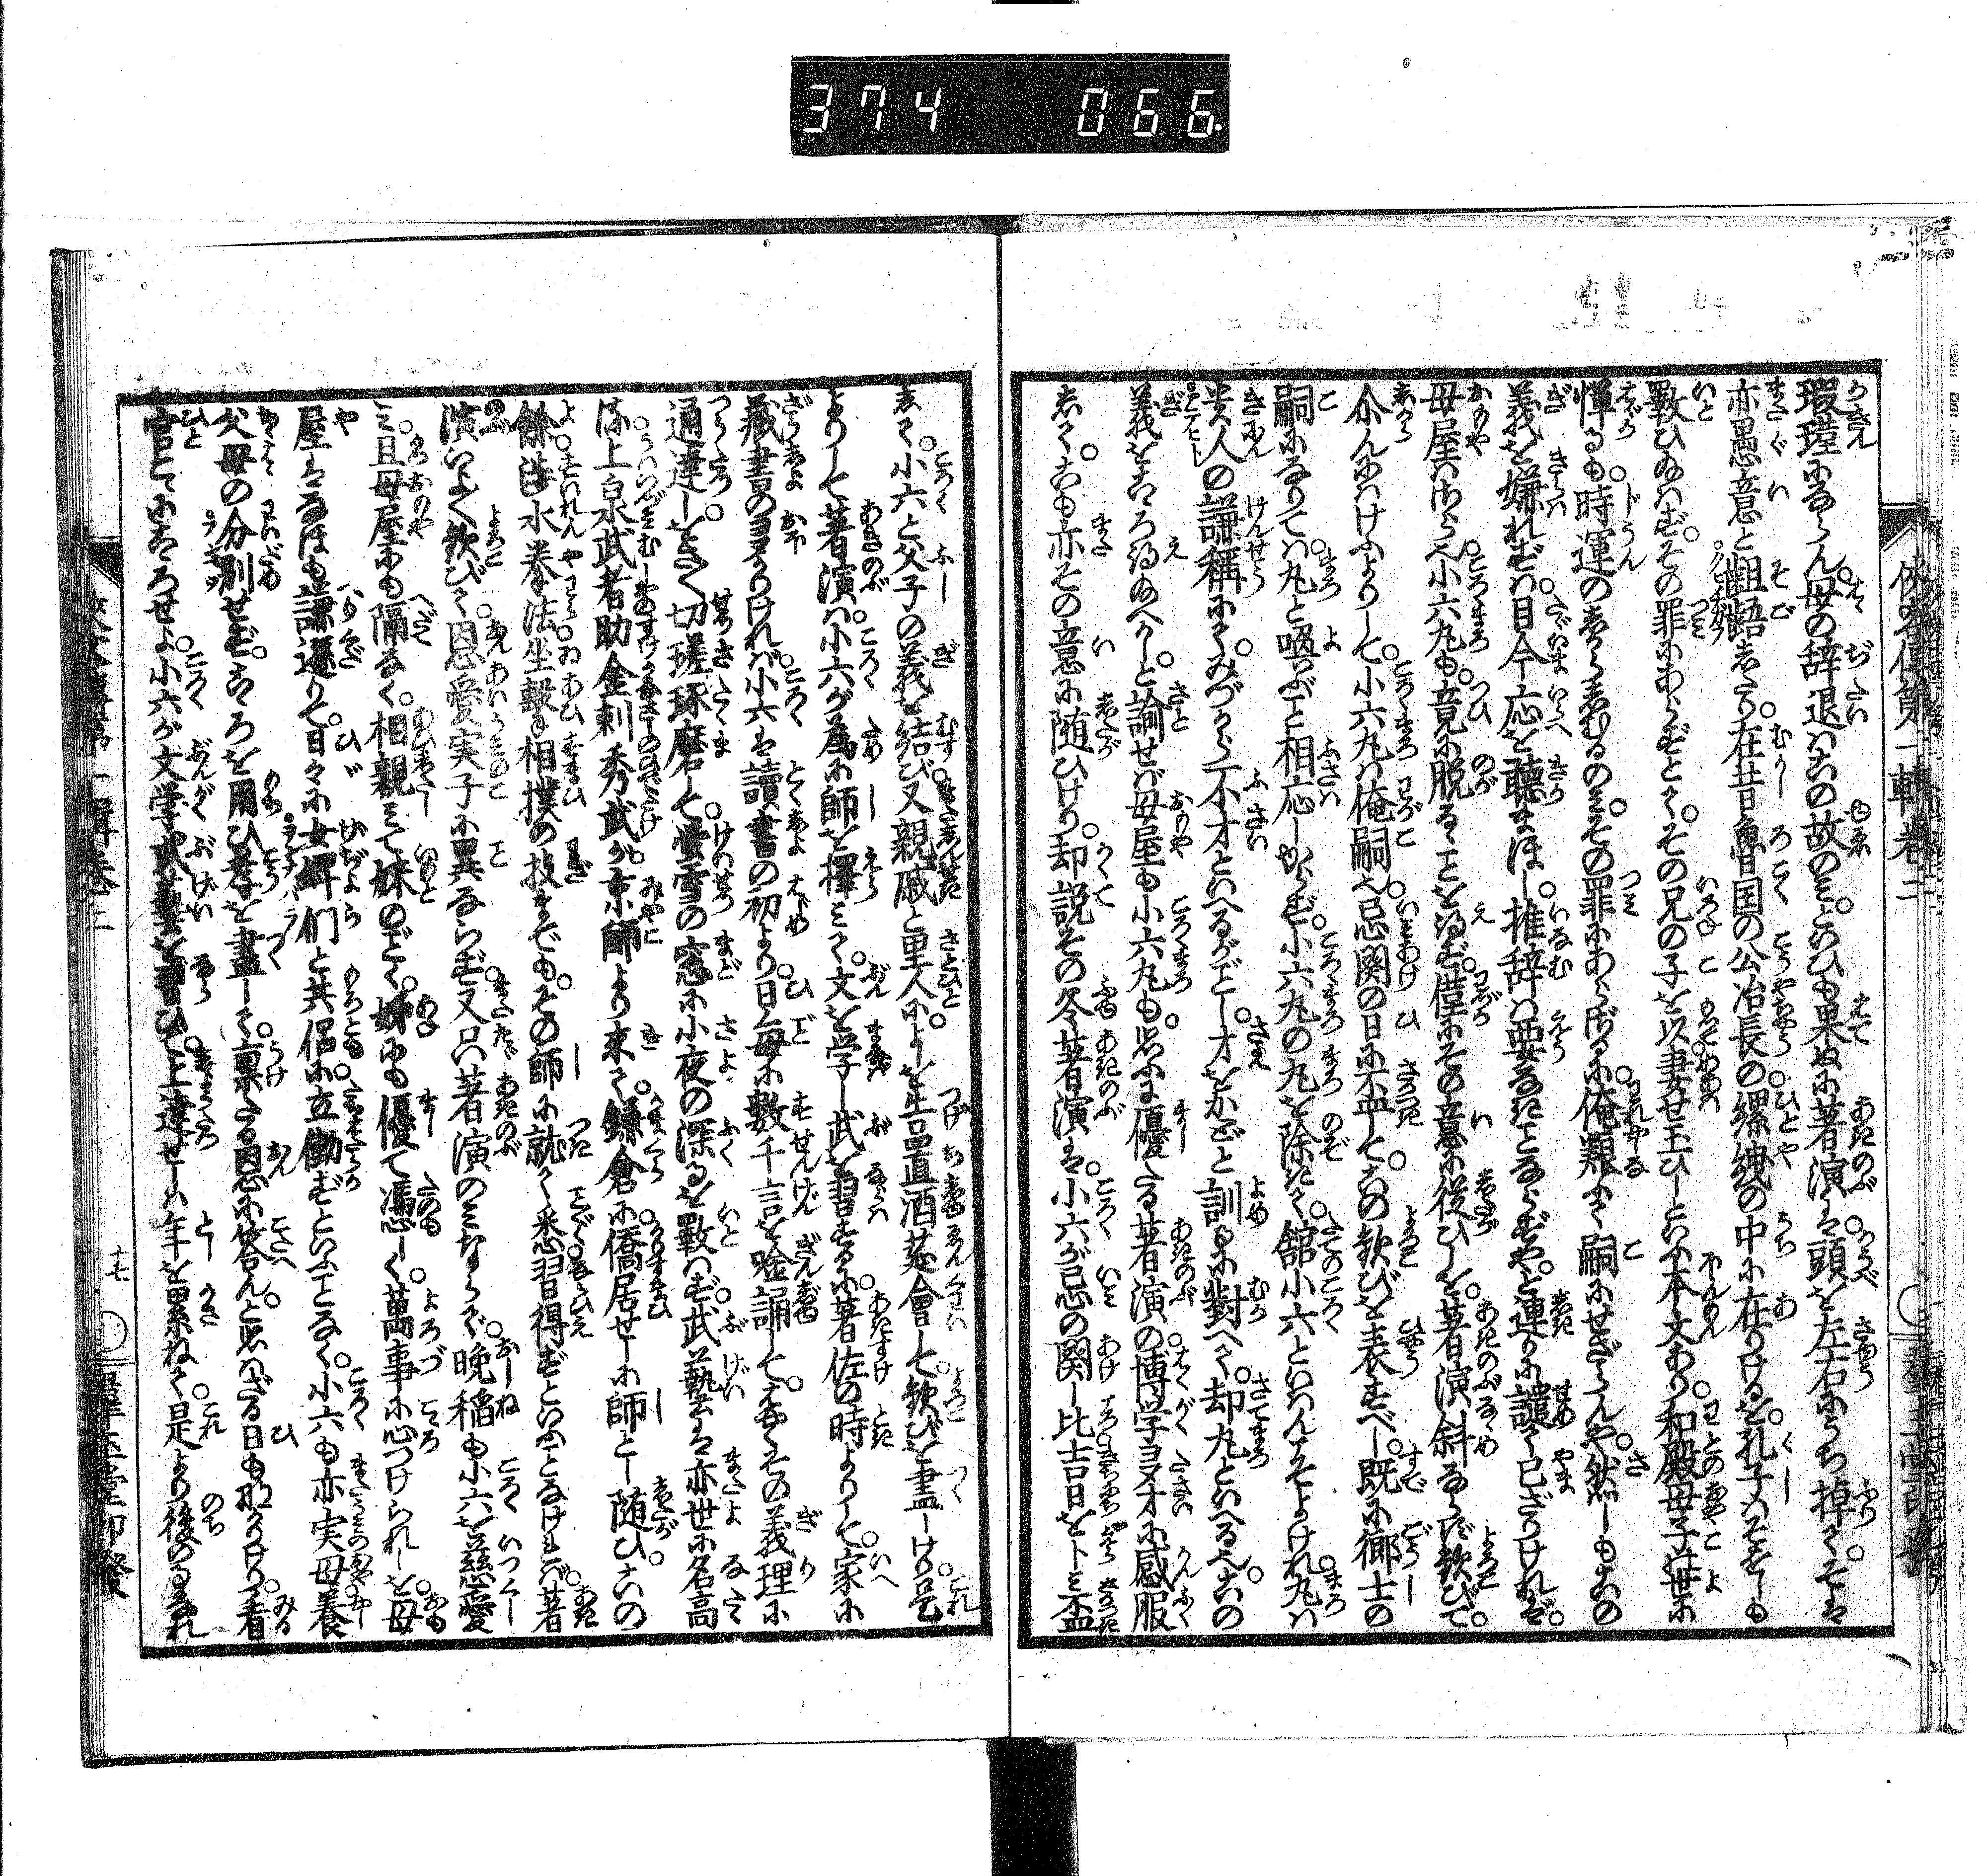 374 066
瑕瑾になるらん。母の辞退はこの故のみ。といひも果ぬに著演は頭を左右にうち掉て。そは
亦愚意と齟齬したり。在昔魯国の公冶長の縲絏の中に在りけるを。孔子はそをしも
数ひ給はず。その罪にあらずとて。その兄の子を以妻せ玉ひしといふ本文あり。和殿母子は世に
憚るも。時運のしからしむるのみ。その罪にあらざるに俺類なく嗣にせざらんや。然しもこの
義を嫌れずは目今応を聴まほし。推辞は要なきことならずや。と連りに譴て已ざりければ。
母屋はさら也小六丸も。竟に脱るることを得ず僅にその意に従ひしを。著演斜ならず歓びて
尒らんにはけふよりして。小六丸は俺嗣也。忌関の日に盃して。この歓びを表すべし。既に郷士の
嗣になりては。丸と喚ばんこと相応しからず。小六丸の丸を除きて。館小六といはんこそよけれ。丸は
貴人の謙称にて。みづから不才といへるがごとし。才をかどと訓るに対へて。却丸といへる也。この
義をこころ得ねかし。と諭せば母屋も小六丸も。思ふに優たる著演の。博学多才に感服
しつ。こも亦その意に随ひけり。却説その冬著演は。小六が忌の関し比吉日を卜み盃
して。小六と父子の義を結び又親戚と里人によしを告置酒宴會して。歓びを盡しけり。是
よりして著演は。小六が為に師を択みて。文を学し武を習するに。著佐の時よりして。家に
蔵書の多かりければ。小六は読書の初より。日毎に数千言を暗誦して。よくその義理に
通達しをさをさ切磋琢磨して。蛍雪の窓に小夜の深るを数はず。武藝は亦世に名高
滋上泉武者助金刺秀武が。京師より来て。鎌倉に僑居せしに師とし随ひ。この
餘游水拳法坐撃相撲の技までも。その師に就て悉習得ずといふことなければ。著
演いよよ歓びて。恩愛実子に異ならず。又只著演のみならで。晩稲も小六を慈愛
み。且母屋にも隔なく。相親みて妹のごとく。姉にも優て憑しく。萬事に心つけられしを。母
屋はなほも謙遜りて。日々に女婢们と共侶に立働ずといふことなく。小六も亦実母養
父母の分別せず。こころを用ひ孝を盡して。稟たる恩に答んと思はざる日もなかりけり。看
官とくにこころせよ。小六が文学武藝を習ひて上達せしは年を累ねて。是より後の事なれ
十七